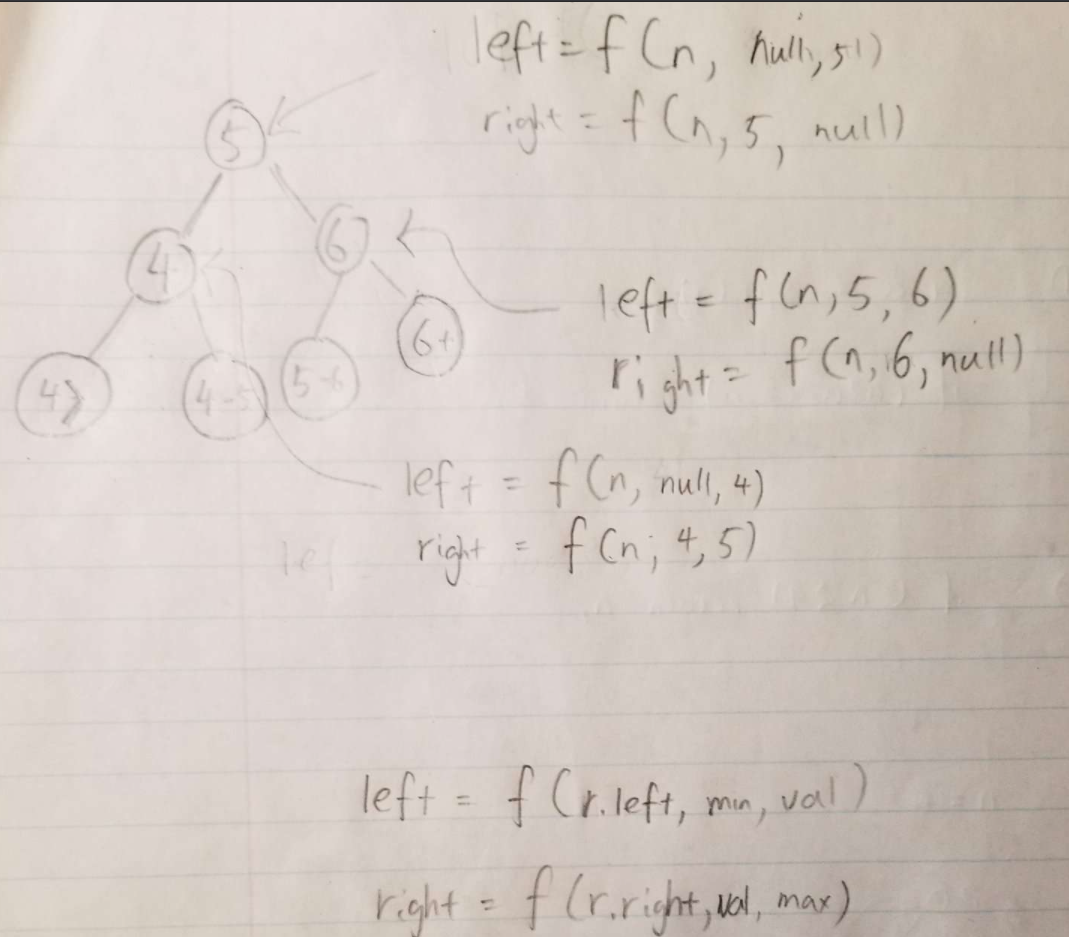 left = f(n, null, 5)
right = f(n, 5, null)
5
4
6
left = f(n, 5, 6)
right = f(n, 6, null)
6+
4>
4-5
5-6
left = f(n, null, 4)
right = f(n, 4, 5)
lef
left = f(r.left, min, val)
right = f(r.right, val, max)